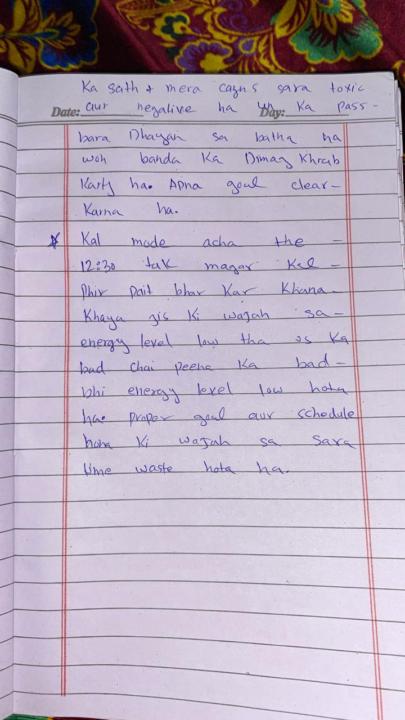 Ka sath + mera cazns sara toxic
Date: aur negative ha un Day: Ka pass -
bara Dhayan sa batha ha
woh banda Ka Dimag Khrab
Karty ha. Apna goal clear -
Karna ha.
☆ Kal mode acha the -
12:30 tak magar Kal -
Phir Pait bhar Kar Khana -
Khaya jis Ki wajah sa -
energy level low tha os Ka
bad chai peena Ka bad -
bhi energy level low hota
ha. proper goal aur schedule
hona Ki wajah sa sara
time waste hota ha.